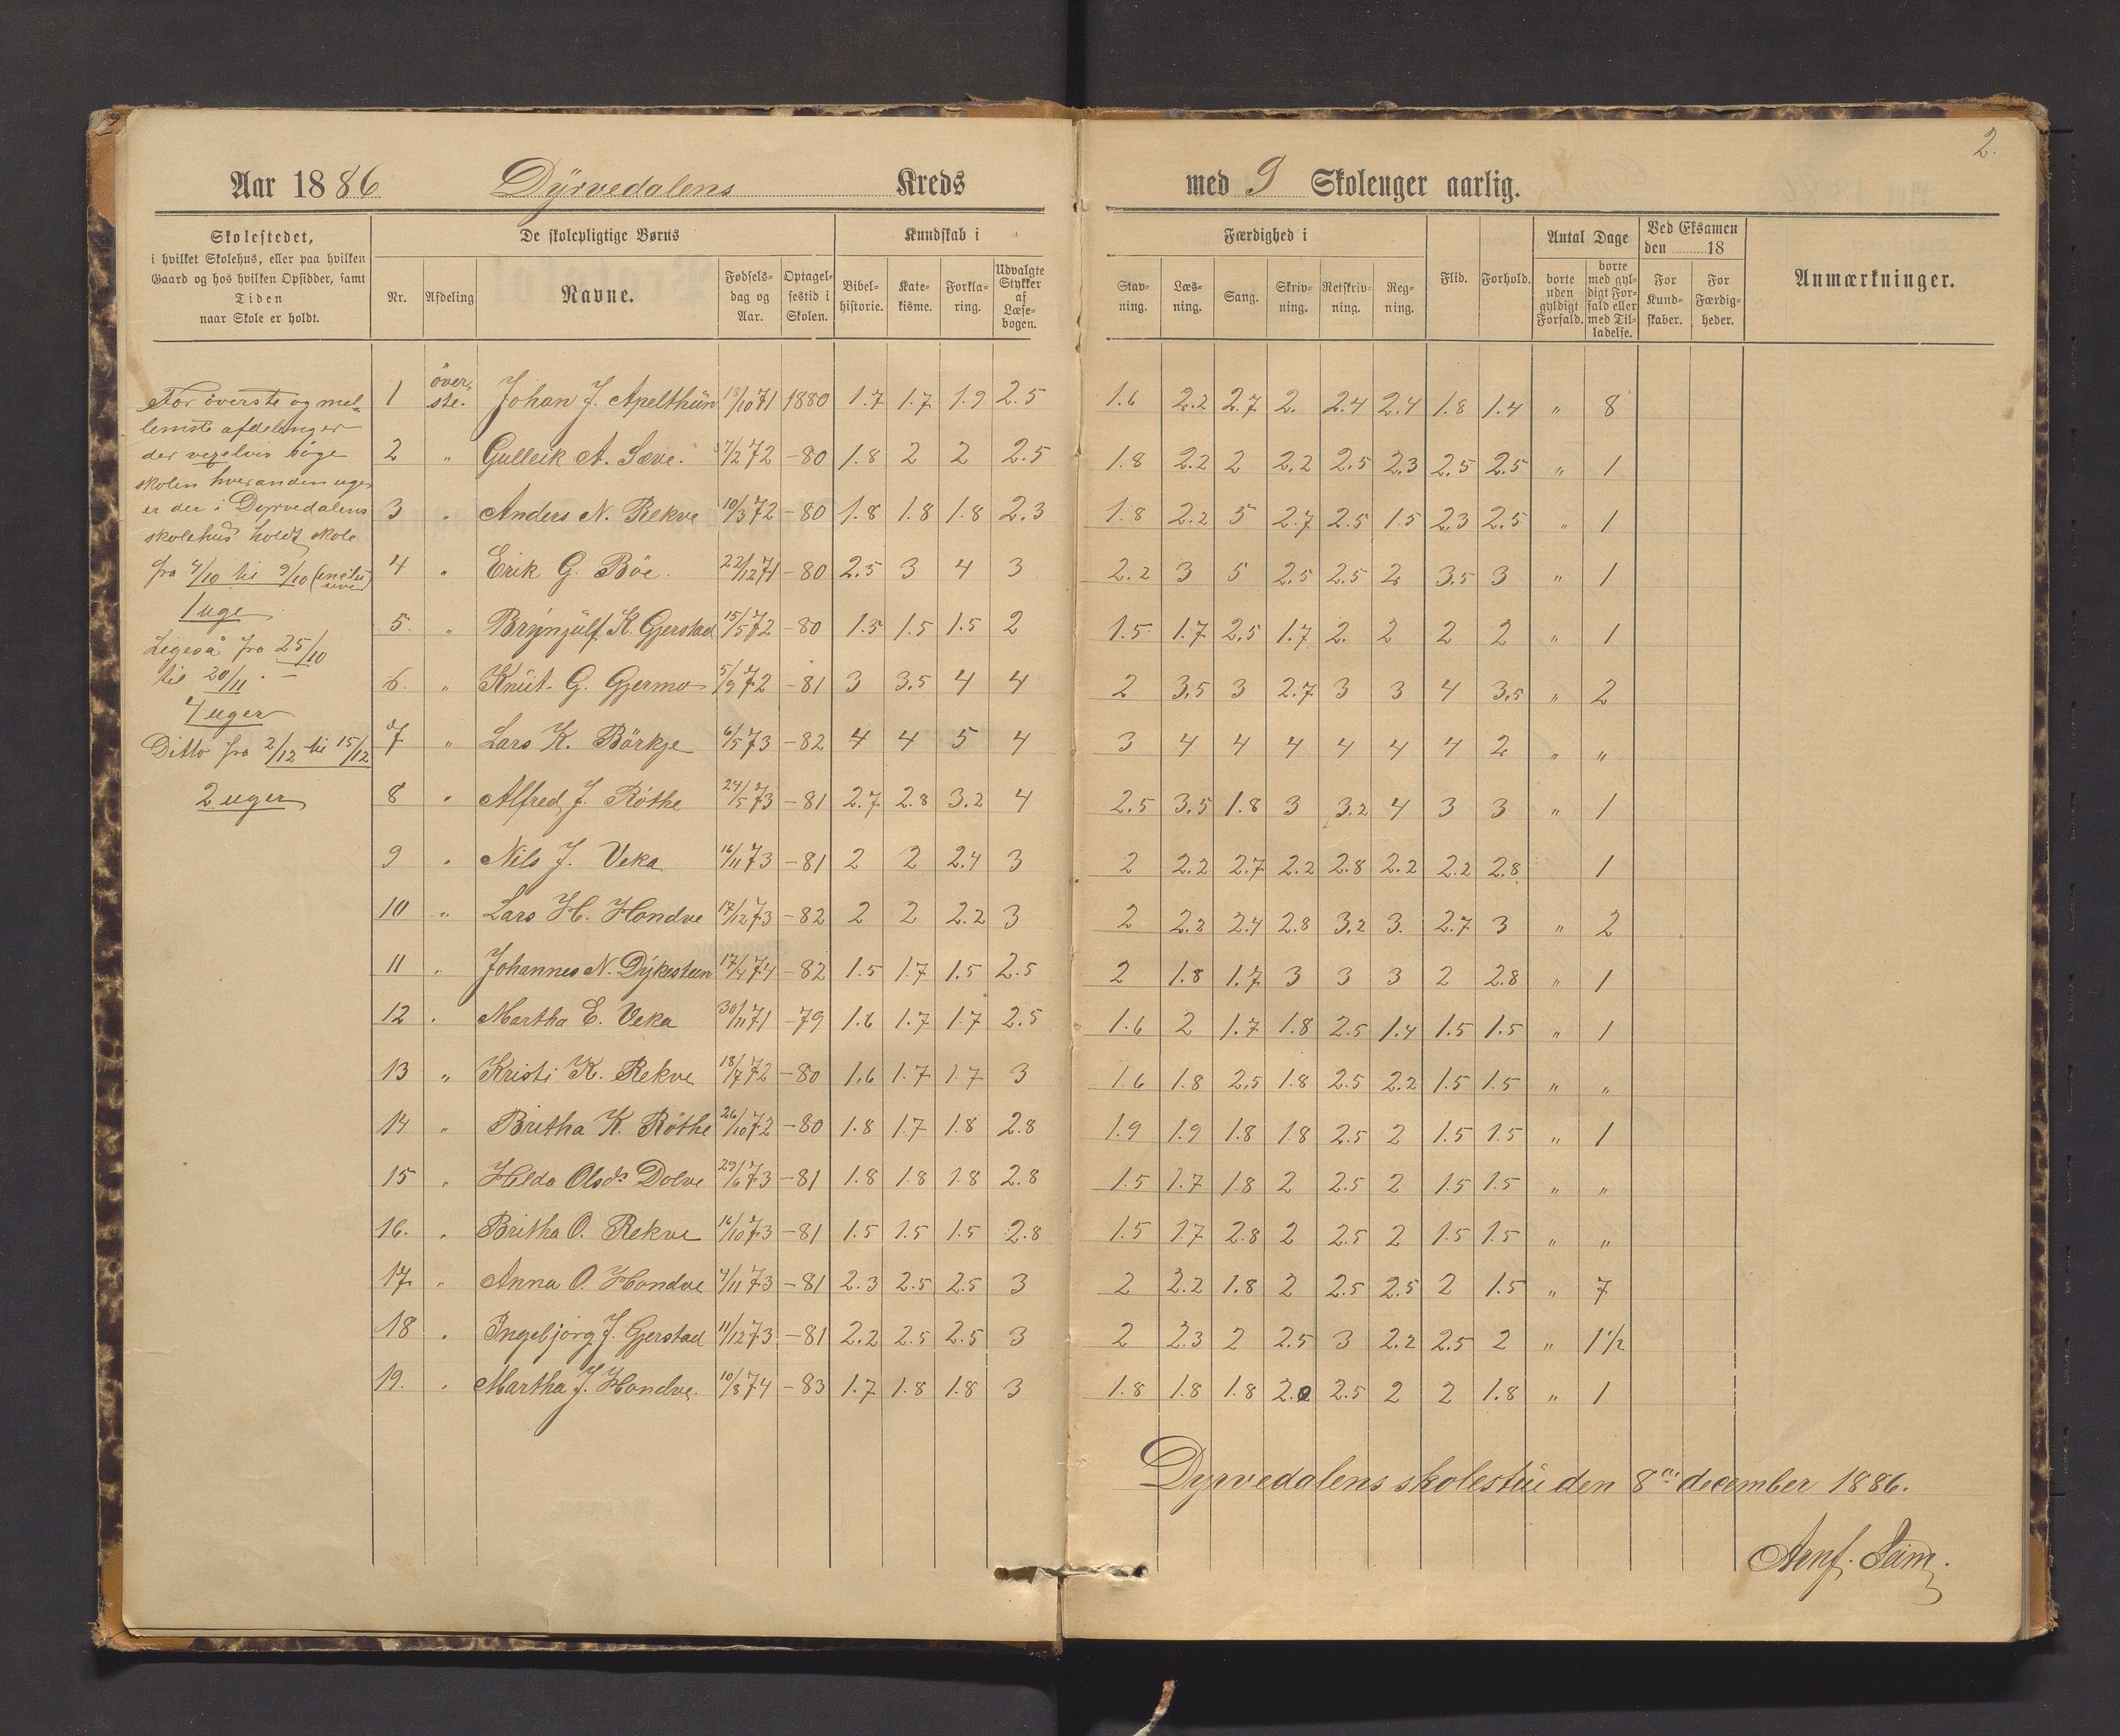 2.
Aar 1886 Dÿrvedalens Kreds med 9 Skoleuger aarlig.
Skolestedet,
i hvilket Skolehus, eller paa hvilken
Gaard og hos hvilken Opsidder, samt
Tiden
naar Skole er holdt.
De skolepligtige Børns
Nr. Afdeling Navne. Fødselsdag og Aar. Optagelsestid i Skolen.
Kundskab i
Bibelhistorie. Katekisme. Forklaring. Udvalgte Stykker af Læsebogen.
Færdighed i
Stavning. Læsning. Sang. Skrivning. Retskrivning. Regning. Flid. Forhold.
Antal Dage
borte uden gyldigt Forfald. borte med gyldigt Forfald eller med Tilladelse.
Ved Eksamen
den 18
For Kundskaber. For Færdigheder.
Anmærkninger.
For överste og mel-
lemste afdelinger
der vexelvis söge
skolen hver anden uge
er der i Dyrvedalens
skolehus holdt skole
fra 4/10 til 9/10 (inclusive)
1 uge
Ligeså fra 25/10
til 20/11. –
4 uger
Ditto fra 2/12 til 15/12
2 uger
1 överste. Johan J. Apelthün 18/10 71 1880 1.7 1.7 1.9 2.5 1.6 2.2 2.7 2. 2.4 2.4 1.8 1.4 " 8
2 " Gulleik A. Sæve. 7/2 72 -80 1.8 2 2 2.5 1.8 2.2 2 2.2 2.5 2.3 2.5 2.5 " 1
3 " Anders N. Rekve 10/3 72 -80 1.8 1.8 1.8 2.3 1.8 2.2 5 2.7 2.5 1.5 2.3 2.5 " 1
4 " Erik G. Böe. 22/12 71 -80 2.5 3 4 3 2.2 3 5 2.5 2.5 2 3.5 3 " 1
5. " Brÿnjülf K. Gjerstad 15/5 72 -80 1.5 1.5 1.5 2 1.5 1.7 2.5 1.7 2. 2 2 2 " 1
6. " Knüt G. Gjermo 5/9 72 -81 3 3.5 4 4 2 3.5 3 2.7 3 3 4 3.5 " 2
7 " Lars K. Börkje 6/5 73 -82 4 4 5 4 3 4 4 4 4 4 4 2 " "
8 " Alfred J. Röthe 24/5 73 -81 2.7 2.8 3.2 4 2.5 3.5 1.8 3 3.2 4 3 3 " 1
9 " Nils J. Veka 16/11 73 -81 2 2 2.4 3 2 2.2 2.7 2.2 2.8 2.2 2.2 2.8 1
10 " Lars H. Hondve 17/12 73 -82 2 2 2.2 3 2 2.2 2.4 2.8 3.2 3. 2.7 3 " 2
11 " Johannes N. Dÿkesteen 17/4 74 -82 1.5 1.7 1.5 2.5 2 1.8 1.7 3 3 3 2 2.8 " 1
12 " Martha E. Veka 30/11 71 -79 1.6 1.7 1.7 2.5 1.6 2 1.7 1.8 2.5 1.4 1.5 1.5 " 1
13 " Kristi K. Rekve 18/7 72 -80 1.6 1.7 1.7 3 1.6 1.8 2.5 1.8 2.5 2.2 1.5 1.5 " "
14 " Britha K. Röthe 26/10 72 -80 1.8 1.7 1.8 2.8 1.9 1.9 1.8 1.8 2.5 2 1.5 1.5 " 1
15 " Helda Olsdr Dolve 29/6 73 -81 1.8 1.8 1.8 2.8 1.5 1.7 1.8 2 2.5 2 1.5 1.5 " "
16. " Britha O. Rekve 16/10 73 -81 1.5 1.5 1.5 2.8 1.5 1.7 2.8 2 2.5 2 1.5 1.5 " "
17. " Anna O. Hondve 4/11 73 -81 2.3 2.5 2.5 3 2 2.2 1.8 2 2.5 2.5 2 1.5 " 7
18 " Ingebjörg J. Gjerstad 11/12 73 -81 2.2 2.5 2.5 3 2 2.3 2 2.5 3 2.2 2.5 2 " 1½
19. " Martha J. Hondve. 10/8 74 -83 1.7 1.8 1.8 3 1.8 1.8 1.8 2.2 2.5 2 2 1.8 " 1
Dyrvedalens skolestue den 8de december 1886.
Arnf.